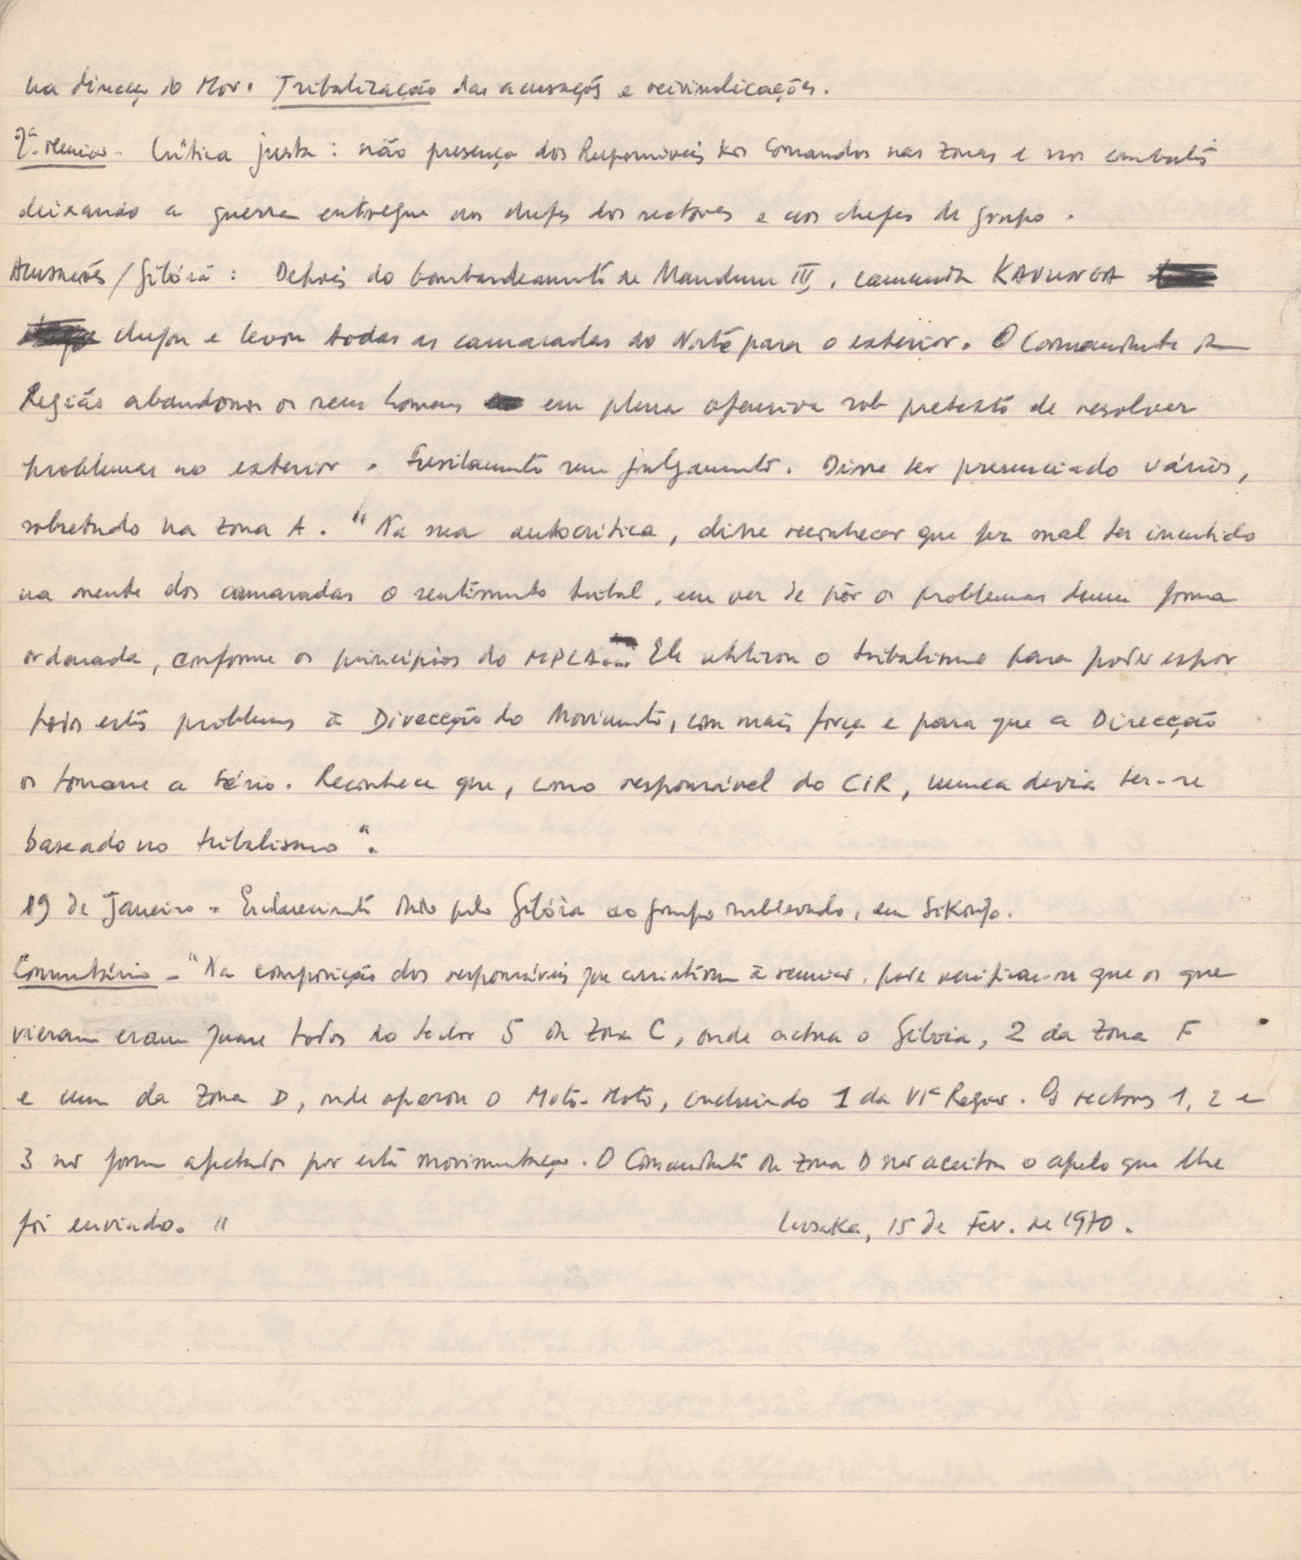 na direcç do Mov. Tribalização das acusações e reivindicações.
2ª. reunião - Crítica justa: não presença dos Responsáveis dos Comandos nas zonas e nos combates
deixando a guerra entregue aos chefes dos sectores e aos chefes de grupo.
Acusações/Gibóia: Depois do bombardeamento de Mandume III, camarada KAVUNGA
chefou e levou todas as camaradas do Norte para o exterior. O Comandante da
Região abandonou os seus homens em plena ofensiva sob pretexto de resolver
problemas no exterior. Fusilamento sem julgamento. Disse ter presenciado vários,
sobretudo na zona A. "Na sua autocrítica, disse reconhecer que fez mal ter incutido
na mente dos camaradas o sentimento tribal, em vez de pôr os problemas duma forma
ordenada, conforme os princípios do MPLA. Ele utilizou o tribalismo para poder expor
todos estes problemas à Direcção do Movimento, com mais força e para que a Direcção
os tomasse a sério. Reconhece que, como responsável do CIR, nunca devia ter-se
baseado no tribalismo".
19 de Janeiro - Esclarecimento dado pelo Gibóia ao grupo sublevado, em Sikongo.
Comentário - "Na composição dos responsáveis que assistiram à reunião, pode verificar-se que os que
vieram eram quase todos do sector 5 da Zona C, onde actua o Gibóia, 2 da Zona F
e um da Zona D, onde operou o Moto-Moto, incluindo 1 da VIª Região. Os sectores 1, 2 e
3 não foram afectados por esta movimentação. O Comandante da Zona D não aceitou o apelo que lhe
foi enviado."
Lusaka, 15 de Fev. de 1970.